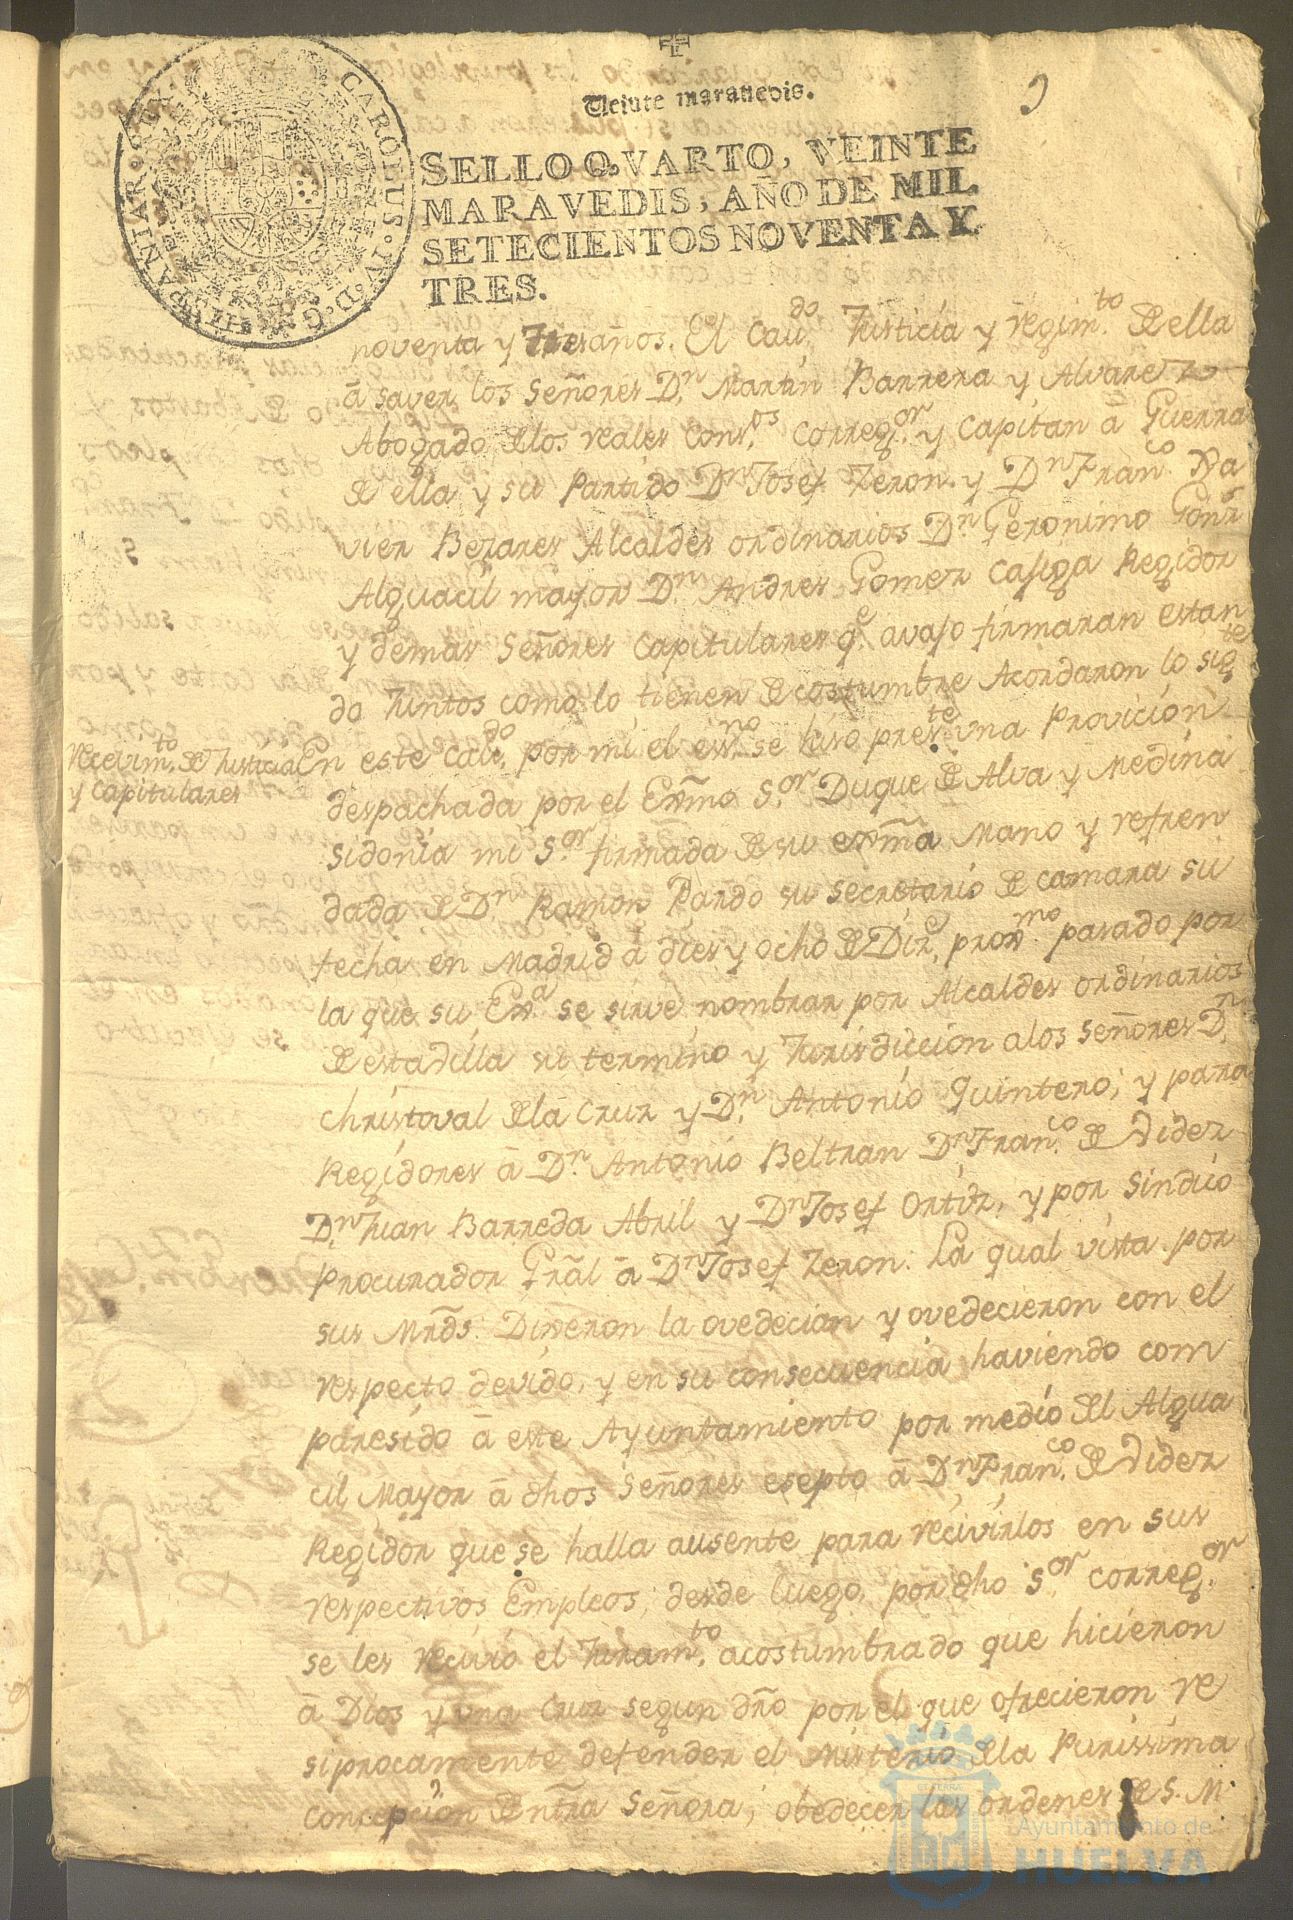 Veinte maravedis.
SELLO QVARTO, VEINTE
MARAVEDIS, AÑO DE MIL
SETECIENTOS NOVENTA Y
TRES.
CAROLUS · IV · D · G · HISPANIAR · REX
noventa y tres años. El Cav.do Justicia y regim.to de ella
â saver los Señores Dn. Martin Barrera y Alvarez
Abogado de los reales Cons.os Correg.or y Capitan â Guerra
de ella y su Partido Dn Josef Zeron. y Dn Fran.co Xa
vier Bezares Alcaldes ordinarios Dn Geronimo Gonz
Alguacil mayor Dn Andres Gomez Regidor
y demas Señores Capitulares q.e avajo firmaran estan
do Juntos como lo tienen de costumbre Acordaron lo sig.te
Recevim.to de Justicia
y Capitulares
En este Cav.do por mi el ess.no se hiso pres.te una Provicion
despachada por el Exmo S.or Duque de Alva y Medina
sidonia mi S.or firmada de su exma Mano y refren
dada de Dn Ramon Pardo su secretario de camara su
fecha en Madrid â dies y ocho de Diz.e prox.mo pasado por
la que su Ex.a se sirve nombrar por Alcaldes ordinarios
de esta dilla su termino y Jurisdiccion a los Señores Dn
Christoval de la Cruz y Dn. Antonio Quintero; y para
Regidores â Dn. Antonio Beltran Dn Fran.co de Videz
Dn Juan Barreda Abril y Dn Josef Ortiz, y por Sindico
Procurador Gral â Dn Josef Zeron. La qual vista por
sus Mrds. Dixeron la ovedecian y ovedecieron con el
respecto devido, y en su consecuencia haviendo com
paresido â este Ayuntamiento por medio del Algua
cil Mayor â dhos Señores esepto â Dn Fran.co de Videz
Regidor que se halla ausente para recivirlos en sus
respectivos Empleos; desde luego, por dho S.or Correg.or
se les recivio el Juram.to acostumbrado que hicieron
â Dios y una Cruz segun dro por el que ofrecieron re
siprocamente defender el Misterio de la Purissima
Concepcion de Ntra Señora; obedecer las ordenes de S. M.
Ayuntamiento de
HUELVA